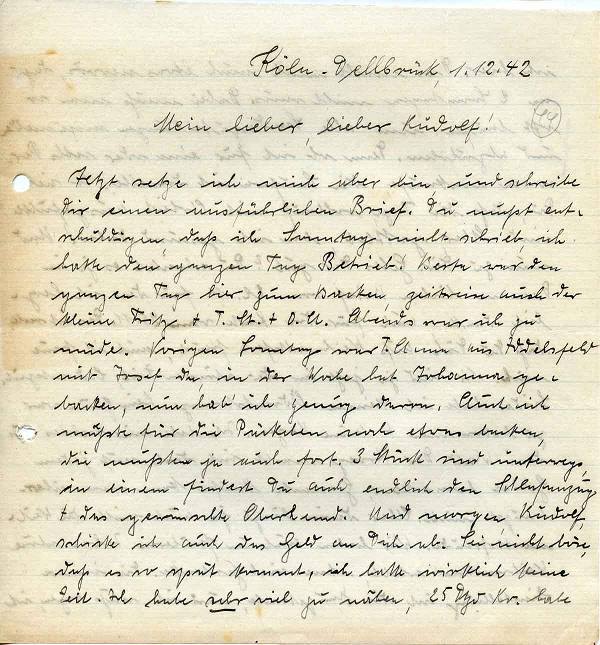 Köln-Dellbrück, 1.12.42
44
Mein lieber, lieber Rudolf!
Jetzt setze ich mich aber hin und schreibe
Dir einen ausführlichen Brief. Du mußt ent-
schuldigen, daß ich Sonntag nicht schrieb, ich
hatte den ganzen Tag Betrieb. Berta war den
ganzen Tag hier zum Backen, zeitweise auch der
kleine Fritz + T. St. + O. A. Abends war ich zu
müde. Vorigen Sonntag war T. Anna aus Iddelsfeld
mit Josef da, in der Woche hat Johanna ge-
backen, nun hab' ich genug davon. Auch ich
mußte für die Päckchen noch etwas backen,
die mußten ja auch fort. 3 Stück sind unterwegs,
in einem findest Du auch endlich den Schlafanzug
+ das gewünschte Oberhemd. Und morgen Rudolf,
schicke ich auch das Geld an Dich ab. Sei nicht böse,
daß es so spät kommt, ich hatte wirklich keine
Zeit. Ich habe sehr viel zu nähen, 25 Kr. habe